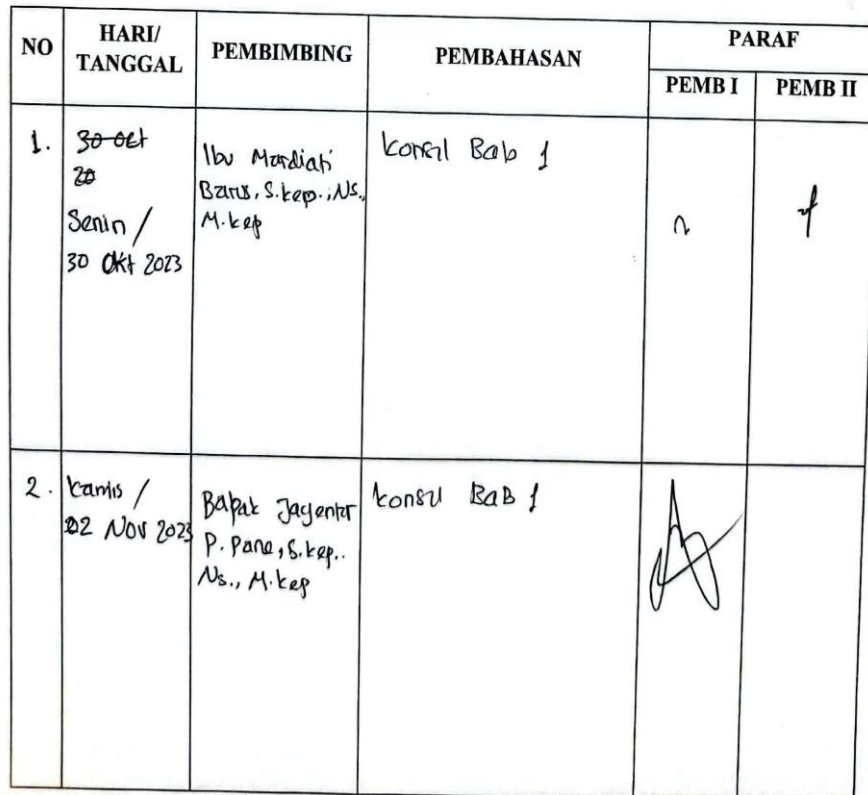 NO HARI/ TANGGAL PEMBIMBING PEMBAHASAN PARAF
PEMB I PEMB II
1. 30 oct
20
Senin /
30 Okt 2023
Ibu Mardiati
Barus, S.kep., Ns.,
M.kep
Konsul Bab 1
2. Kamis /
02 Nov 2023
Bapak Jagentar
P. Pane, S.kep..
Ns., M.kep
Konsul BAB 1